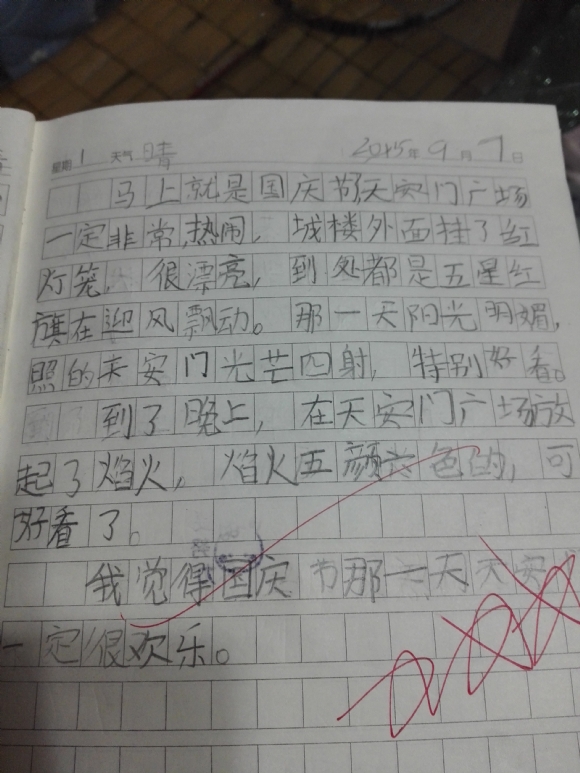 星期1 天气晴 2015年9月7日
马上就是国庆节,天安门广场
一定非常热闹,城楼外面挂了红
灯笼,很漂亮,到处都是五星红
旗在迎风飘动。那一天阳光明媚,
照的天安门光芒四射,特别好看。
到了晚上,在天安门广场放
起了焰火,焰火五颜六色的,可
好看了。
我觉得国庆节那一天天安
一定很欢乐。